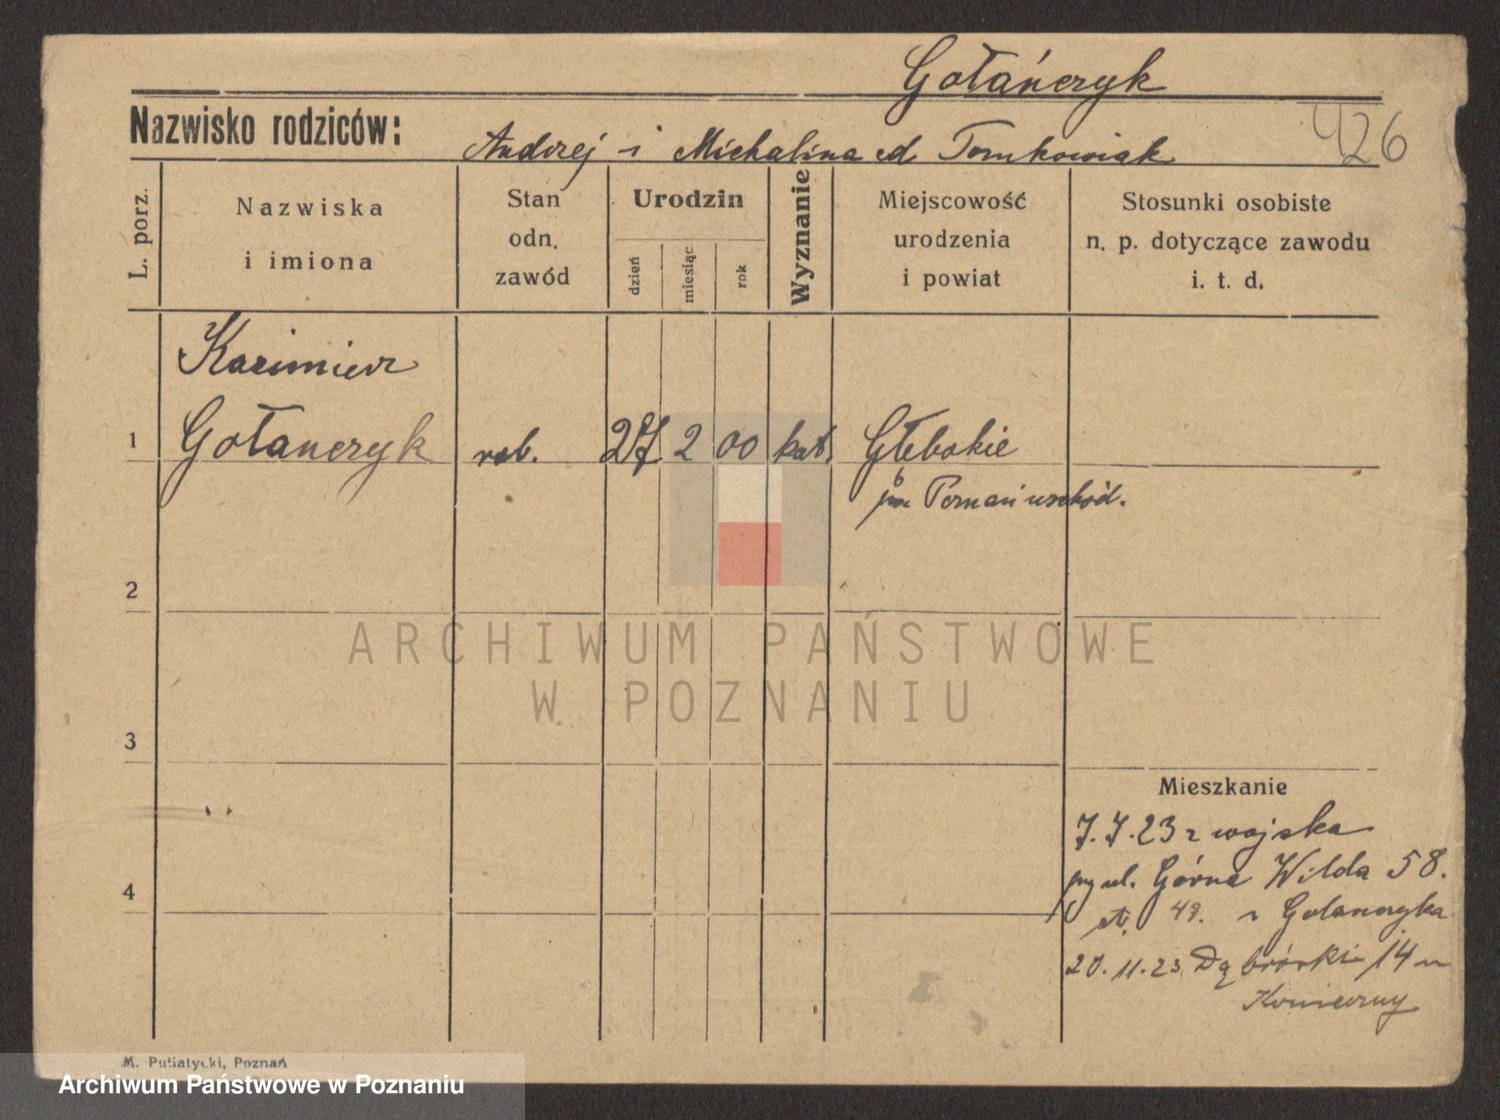 Gołańczyk
Nazwisko rodziców:
Andrzej i Michalina zd Tomkowiak
426
L. porz.
Nazwiska
i imiona
Stan
odn.
zawód
Urodzin
dzień
miesiąc
rok
Wyznanie
Miejscowość
urodzenia
i powiat
Stosunki osobiste
n. p. dotyczące zawodu
i. t. d.
Kazimierz
1 Gołanczyk rob. 27 2 00 kat. Głebokie
Poznań wschód.
2
ARCHIWUM PAŃSTWOWE
W POZNANIU
3
Mieszkanie
7.7.23 z wojska
4
ul. Górna Wilda 58.
49. Golanczyka
20.11.23 Dąbrówki 14 u
Konieczny
M. Putiatycki, Poznań
Archiwum Państwowe w Poznaniu